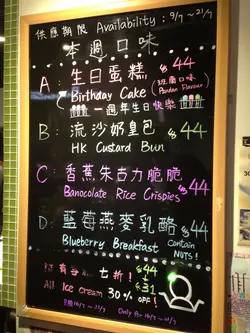 供應期限 Availability: 9/7~21/7
本週口味
A: 生日蛋糕 $44
Birthday Cake (班蘭口味 Pandan Flavour)
一週年生日快樂
B: 流沙奶皇包 $44
HK Custard Bun
C: 香蕉朱古力脆脆
Banocolate Rice Crispies $44
D: 藍莓燕麥乳酪 $44
Blueberry Breakfast Contain NUTS!
七折! $44
All Ice cream 30% OFF! $31